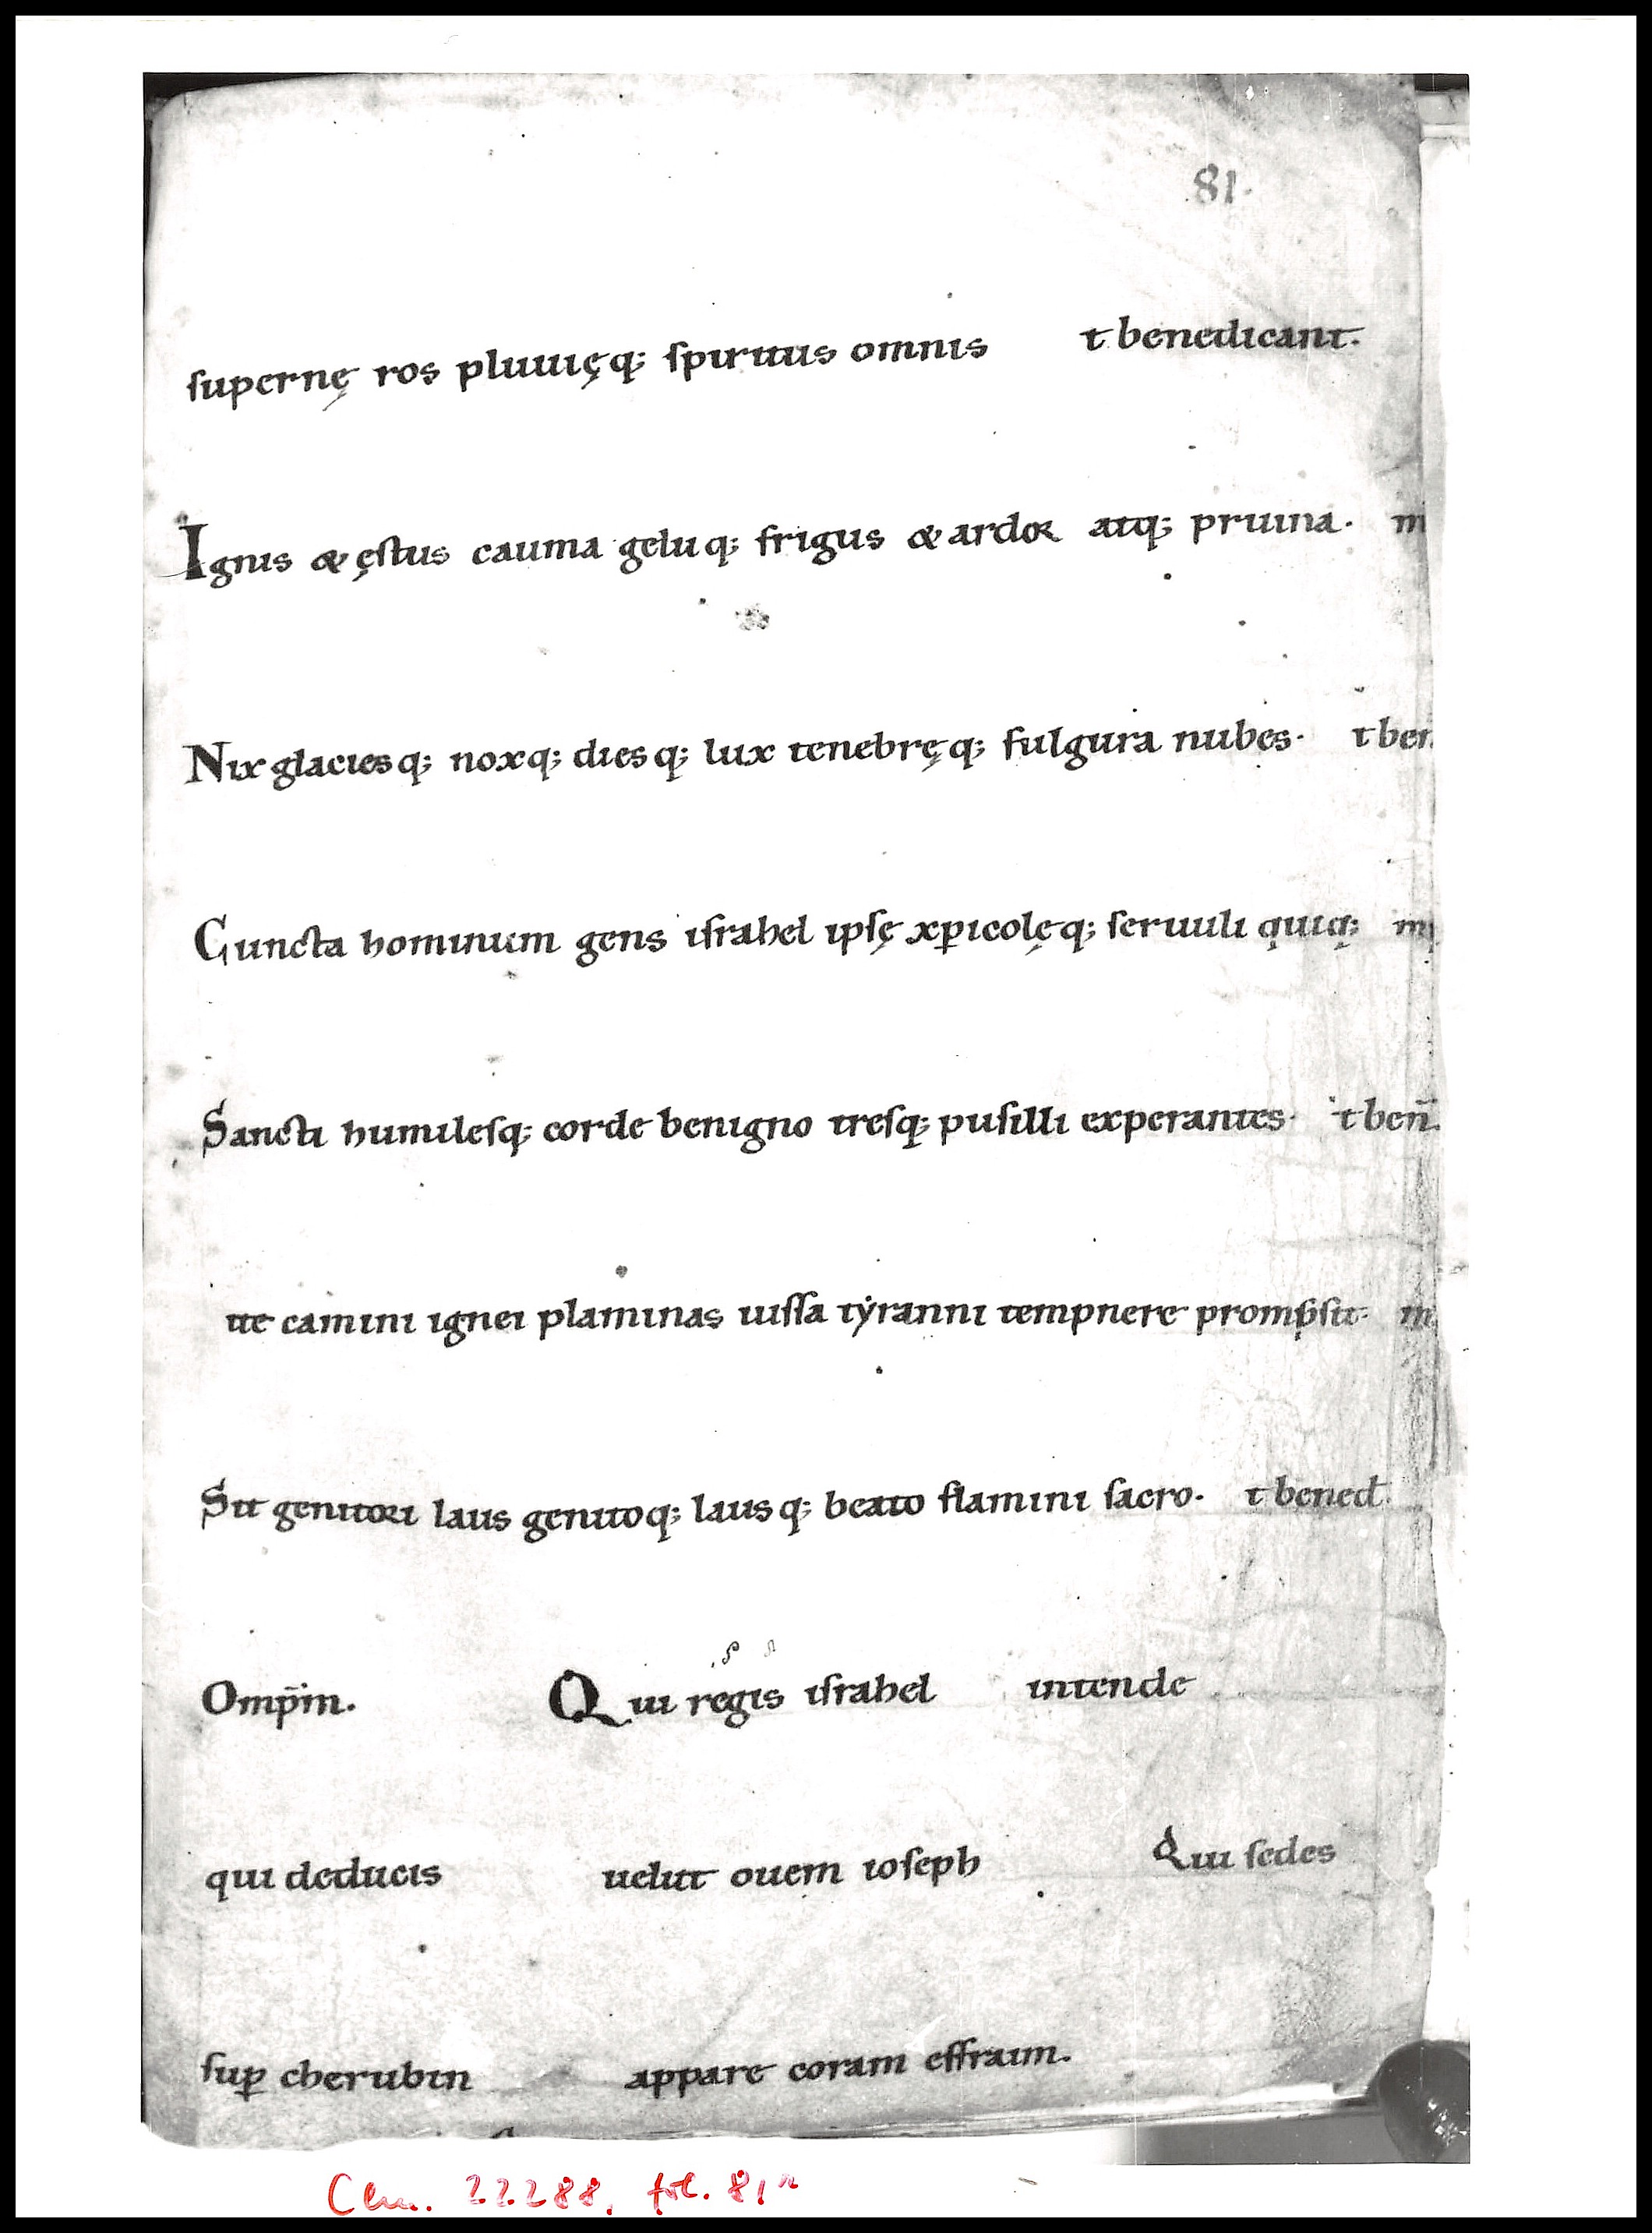 81.
supernę ros pluuięq; spiritus omnis t benedicant.
Ignis & ęstus cauma geluq; frigus & ardor atq; pruina. m
Nix glaciesq; noxq; diesq; lux tenebręq; fulgura nubes. t ben
Cuncta hominum gens israhel ipsę xp̄icolęq; seruuli quiq;
Sancti humilesq; corde benigno tresq; pusilli experantes. t ben̄.
tte camini ignei plaminas iussa tẏranni tempnere prompsit. m
Sit genitori laus genitoq; lausq; beato flamini sacro. t bened
Omp̄m. Qui regis israhel intende
qui deducis uelut ouem ioseph Qui sedes
suꝑ cherubin appare coram effraim.
Clm. 22288, fol. 81r